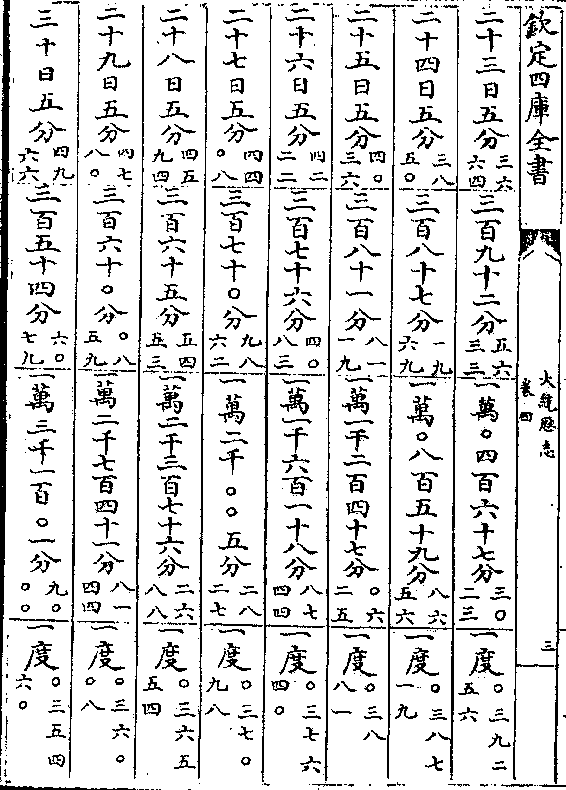 欽定四庫全書
大統歷志
卷四
三
二十三日五分三六六四 三百九十二分五六三三 一萬〇四百六十七分三〇二三 一度〇三九二五六
二十四日五分三八五〇 三百八十七分一九六九 一萬〇八百五十九分八六五六 一度〇三八七一九
二十五日五分四〇三六 三百八十一分八一一九 一萬一千二百四十七分〇六二五 一度〇三八八一
二十六日五分四二二二 三百七十六分四〇八三 一萬一千六百一十八分八七四四 一度〇三七六四〇
二十七日五分四四〇八 三百七十〇分九八六二 一萬二千〇〇五分二八二七 一度〇三七〇九八
二十八日五分四五九四 三百六十五分五四五三 一萬二千三百七十六分二六八八 一度〇三六五五四
二十九日五分四七八〇 三百六十〇分〇八五九 一萬二千七百四十一分八一四四 一度〇三六〇〇八
三十日五分四九六六 三百五十四分六〇七九 一萬三千一百〇一分九〇〇〇 一度〇三五四六〇